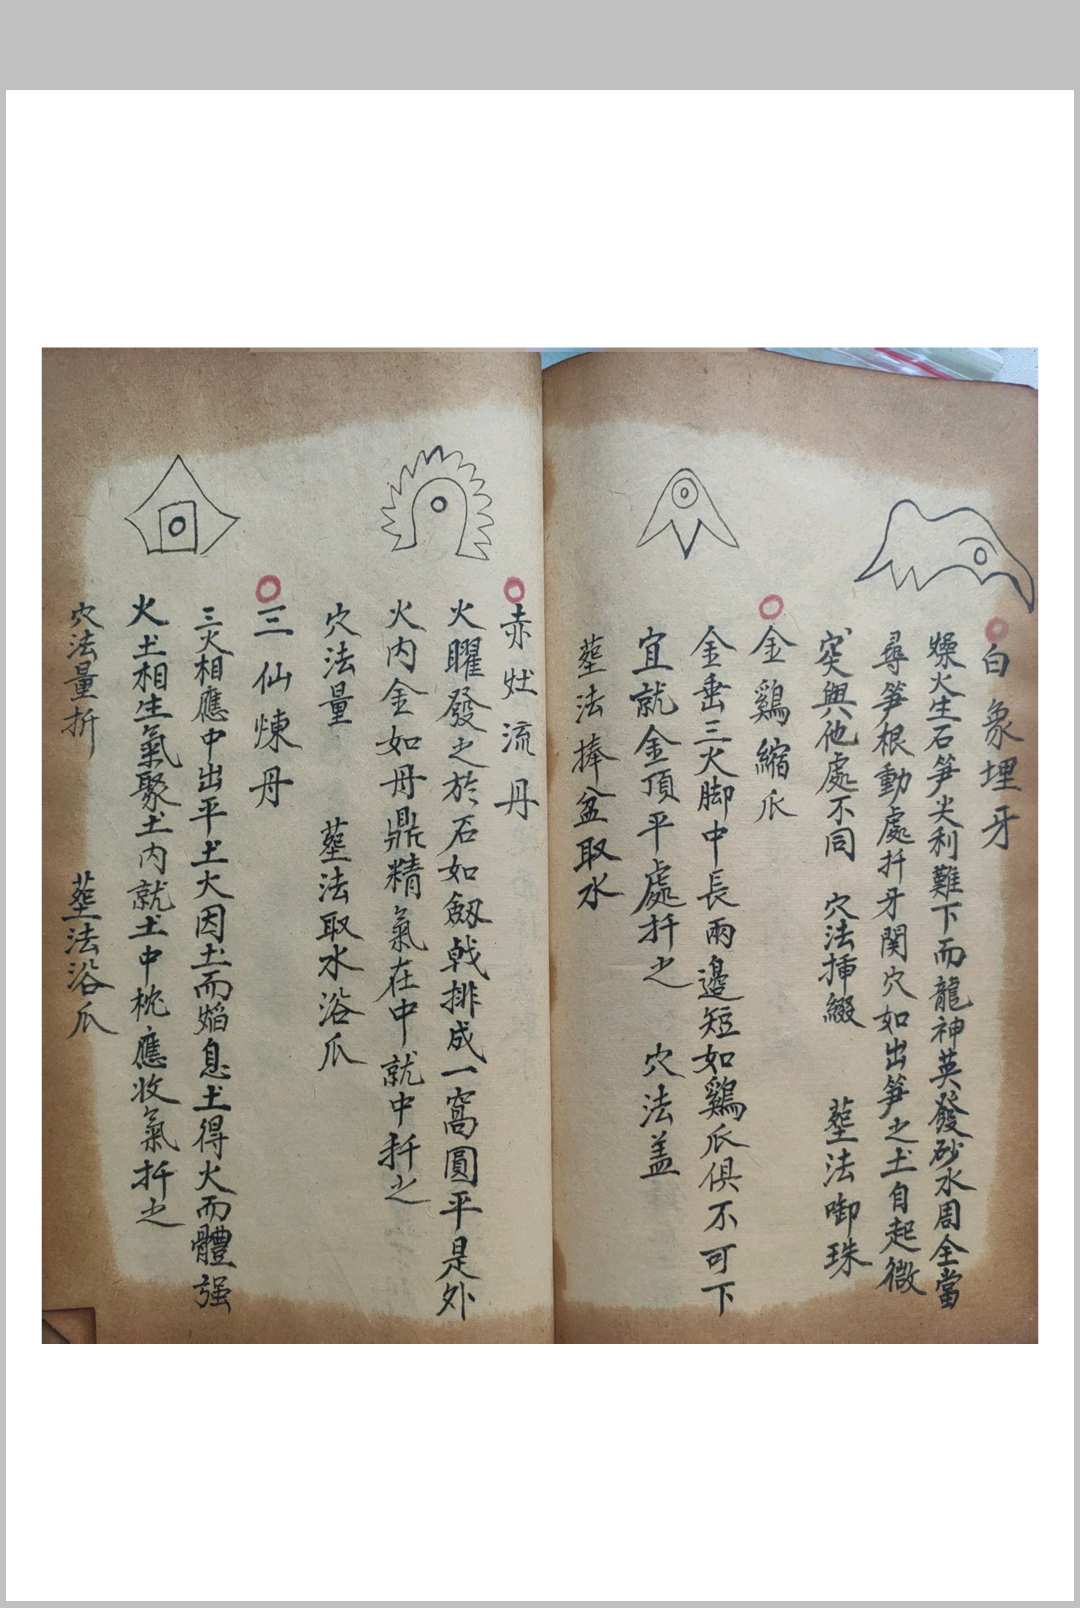 白象埋牙
燥火生石笋尖利難下而龍神英發砂水周全當
尋笋根動處扦牙関穴如出笋之土自起微
突與他處不同 穴法挿綴 塟法啣珠
金鷄縮爪
金垂三火脚中長兩邊短如鷄爪俱不可下
宜就金頂平處扦之 穴法盖
塟法捧盆取水
赤灶流丹
火曜發之於石如劔戟排成一窩圓平是外
火内金如丹鼎精氣在中就中扦之
穴法量 塟法取水浴爪
三仙煉丹
三火相應中出平土火因土而熖息土得火而體强
火土相生氣聚土内就土中枕應收氣扦之
穴法量折 塟法浴爪